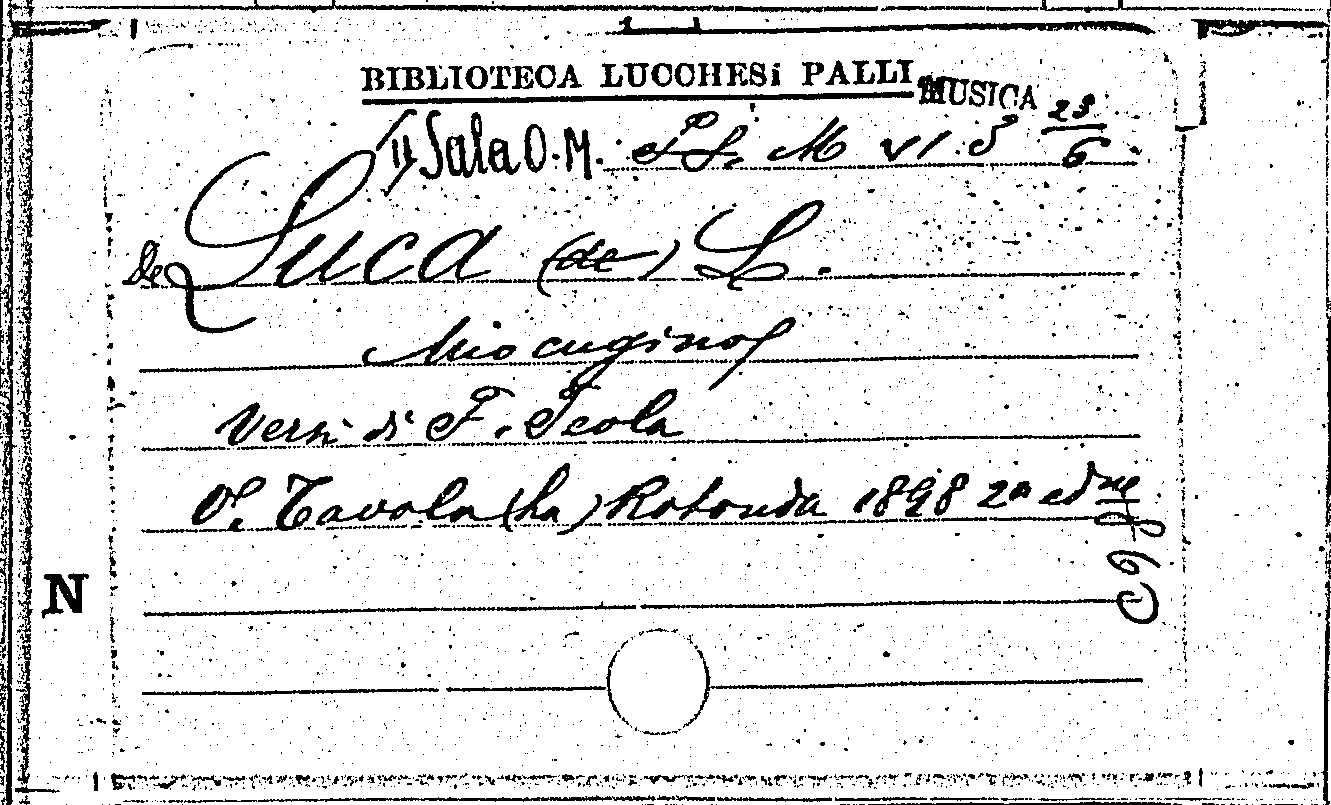 BIBLIOTECA LUCCHESI PALLI
MUSICA
II Sala O.M. P.S. M VI. 5 23/6.
De Luca (de) L.
Mio cugino
Versi di F. Feola
V. Tavola (La) Rotonda 1898 2a edne
N